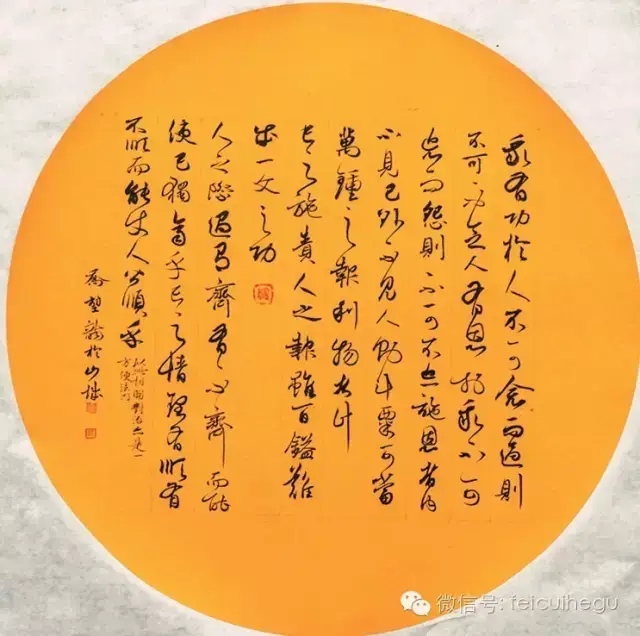 我有功於人不可念而過則
不可不念人有恩於我不可
忘而怨則不可不忘施恩者內
不見己外不見人則斗粟可當
萬鍾之報利物者計
己之施責人之報雖百鎰難
成一文之功
人之際遇有齊有不齊而能
使己獨齊乎己之情理有順有
不順而能使人皆順乎
以此相觀對治亦是一
方便法門
於山城
微信号: feicuihegu